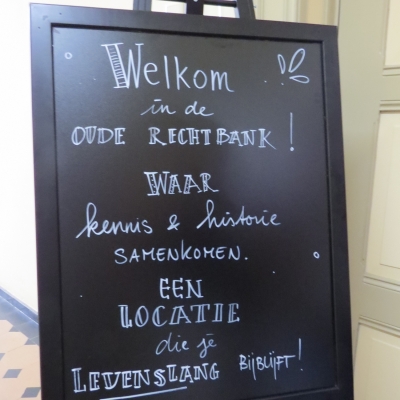 Welkom
in de
OUDE RECHTBANK!
WAAR
kennis & historie
SAMENKOMEN.
EEN
LOCATIE
die je
LEVENSLANG BIJBLIJFT!